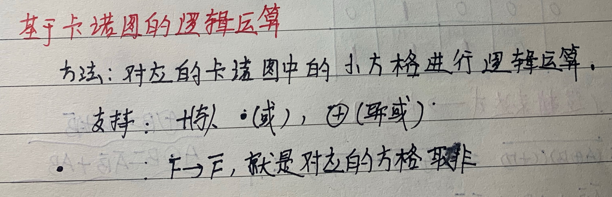 基于卡诺图的逻辑运算
方法：对应的卡诺图中的小方格进行逻辑运算。
支持：+(与)、·(或)，⊕(异或)
F→F̅，就是对应的方格取非